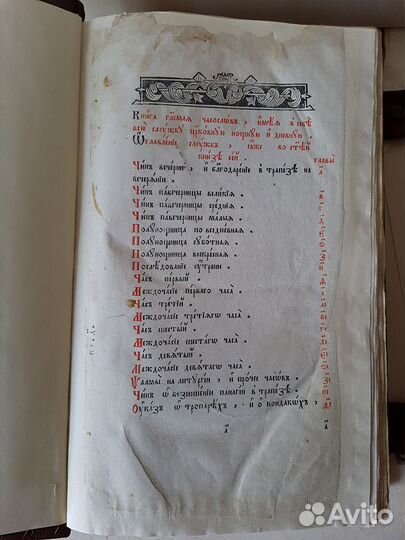 Кни́га гл҃емая часосло́въ , имѣ́ѧ в себѣ̀
всю̀ слꙋ́жбꙋ цр҃ко́внꙋю нощнꙋ́ю и҆ дневнꙋ́ю .
Ѡ҆главле́нїе слꙋ́жбъ , ꙗ҆́же во ст҃ѣ́й
кни́зѣ се́й . главы̀
Чи́нъ вече́рни , и҆ благодаре́нїе в трапе́зѣ на
вече́рѧни .
Чи́нъ павече́рницы вели́кїѧ .
Чи́нъ павече́рницы сре́днїѧ .
Чи́нъ павече́рницы ма́лыѧ .
Полꙋ́нощница по вседне́внаѧ .
Полꙋ́нощница сꙋббо́тнаѧ .
Полꙋ́нощница воскре́снаѧ .
Послѣ́дованїе ᲂу҆́трени .
Ча́съ пе́рвый .
Междоча́сїе пе́рваго часа̀ .
Ча́съ тре́тїй .
Междоча́сїе тре́тїѧго часа̀ .
Ча́съ шесты́й .
Междоча́сїе шеста́гѡ часа̀ .
Ча́съ девѧ́тый .
Междоча́сїе девѧ́таго часа̀ .
Ѱалмы̀ на литꙋргі́и , и҆ про́чее часо́въ .
Чи́нъ ѡ҆ возноше́нїи панагі́и в трапе́зѣ .
Оу҆ка́зъ ѡ҆ тропарѣ́хъ , и҆ ѡ҆ кондакѣ́хъ .
а҃ а҃
Avito